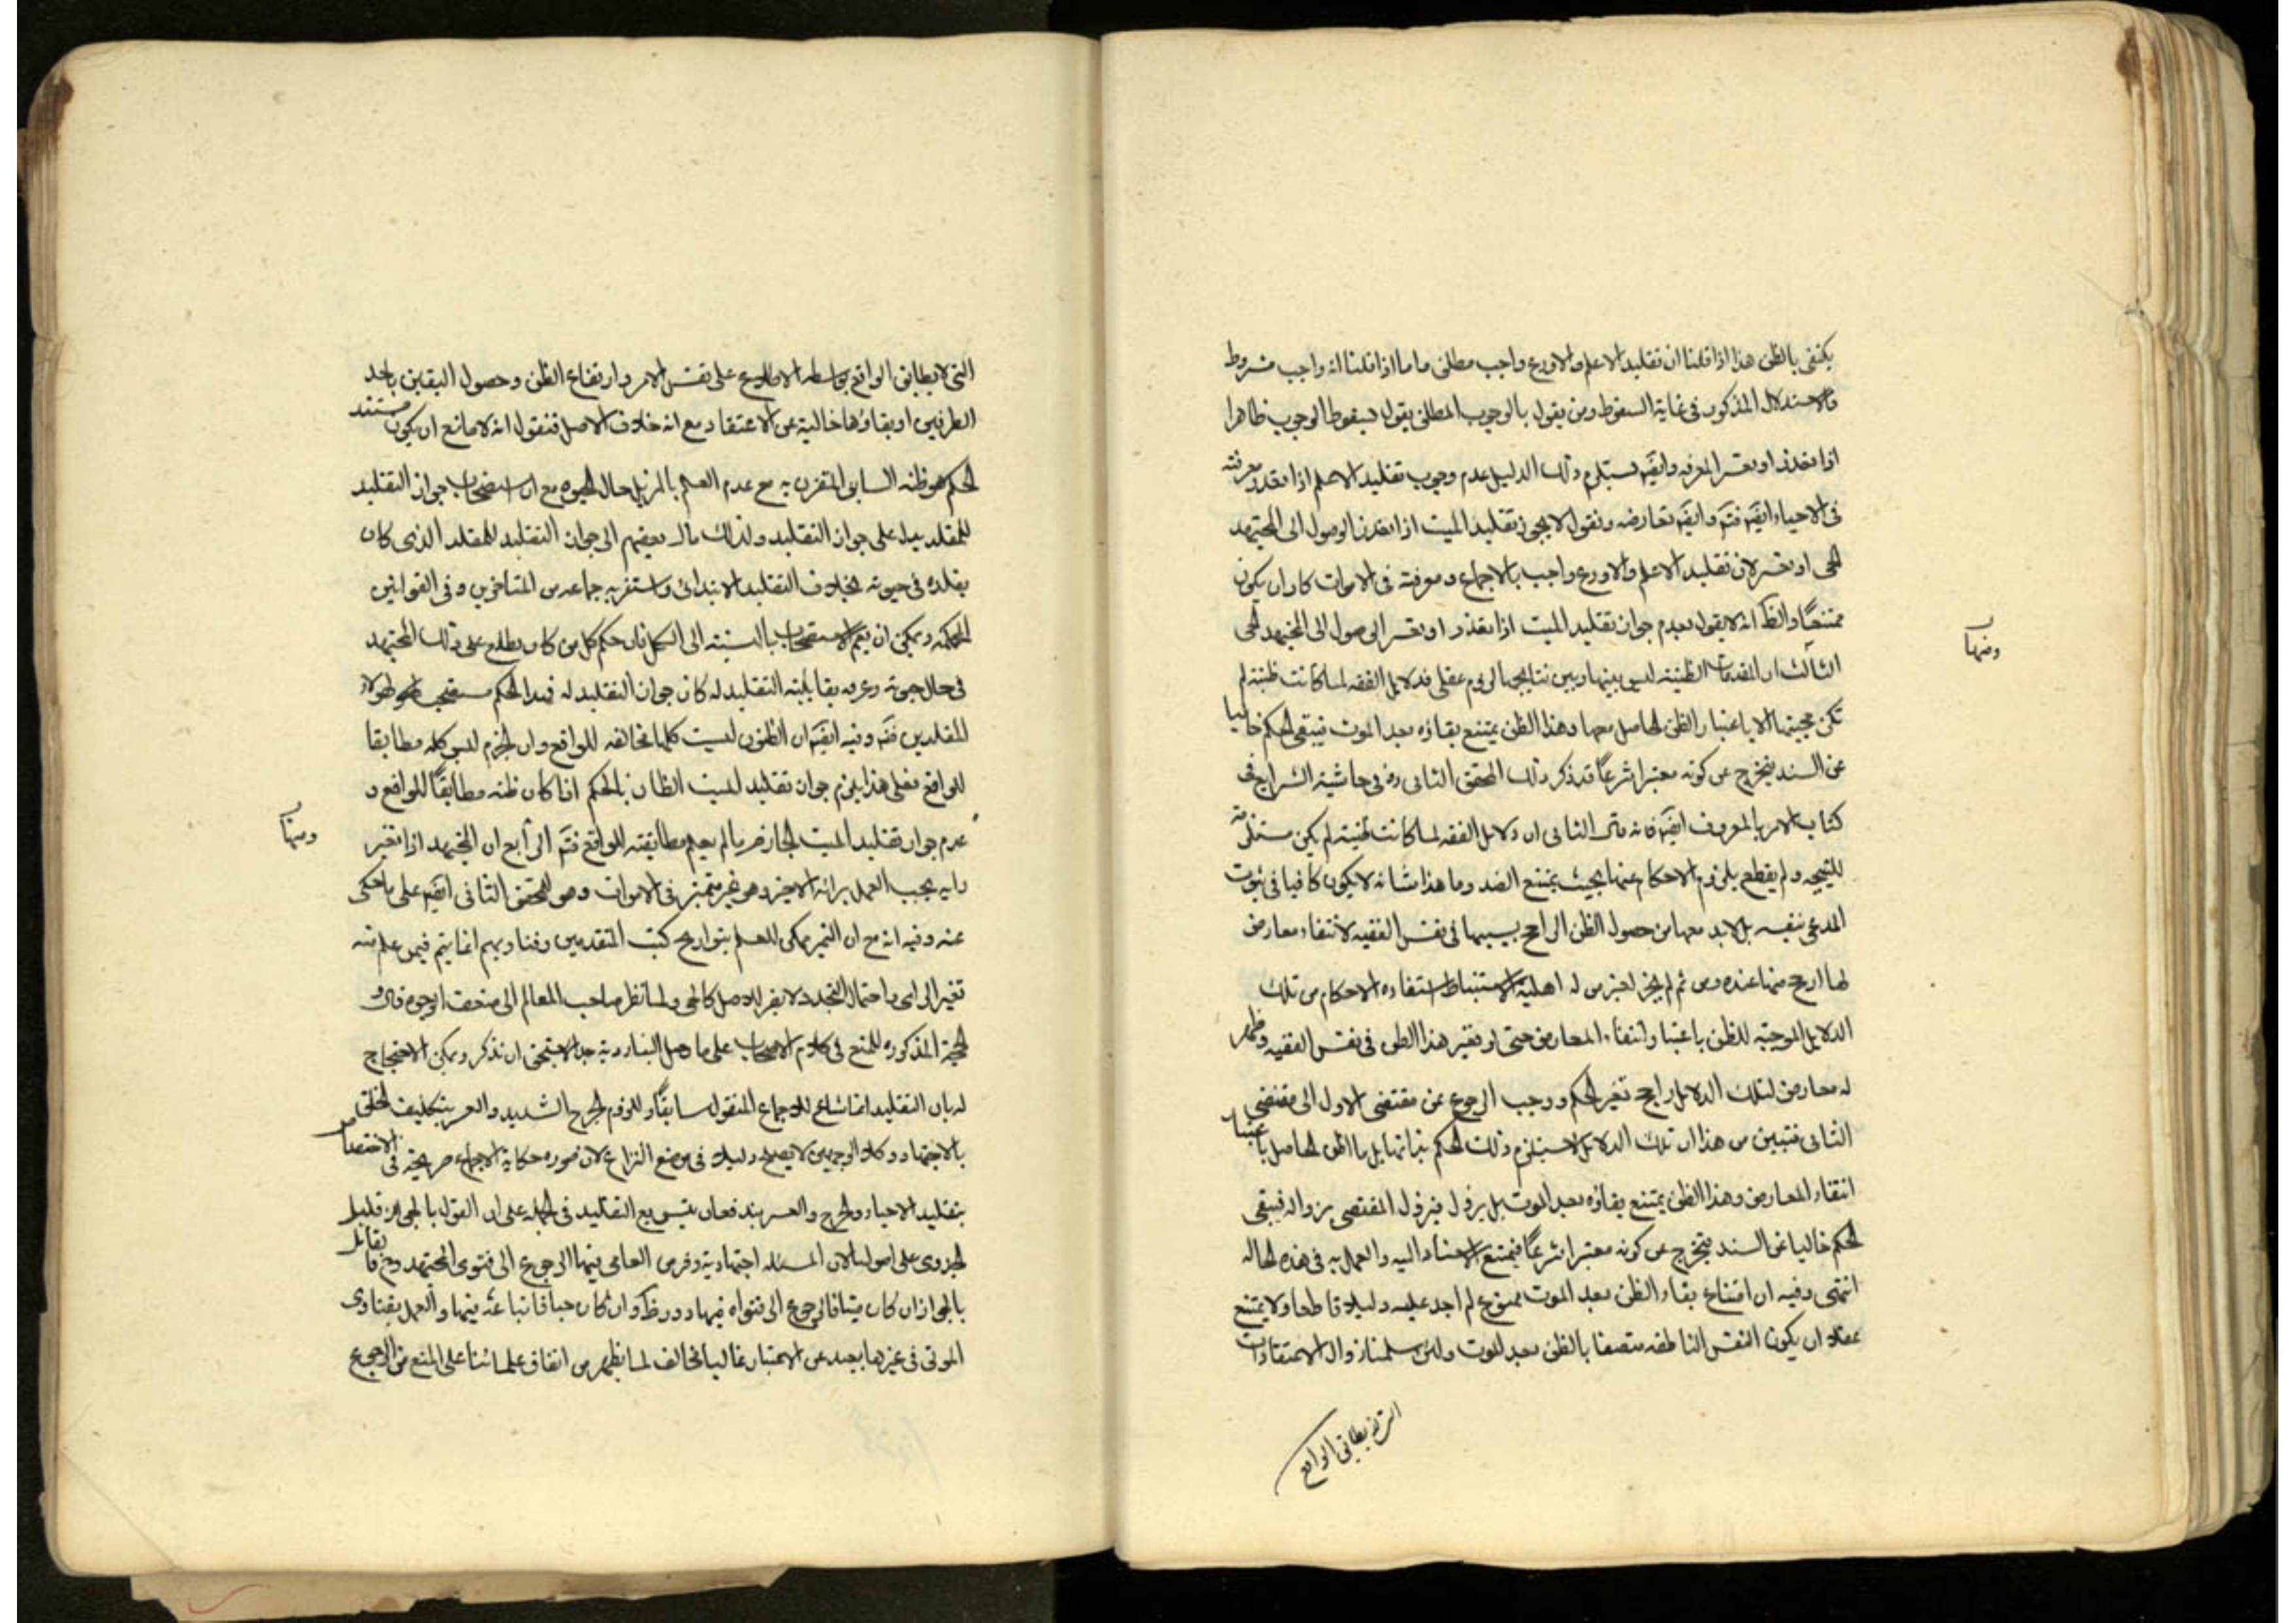 يكتفى بالظن هذا اذا قلنا ان تقليد الاعلم والاورع واجب مطلق واما اذا قلنا انه واجب مشروط
فالاستدلال المذكور فى غاية السقوط ومن يقول بالوجوب المطلق يقول بسقوط الوجوب ظاهرا
اذا تعذر او تعسر المعرفه وايضَا يستلزم ذلك الدليل عدم وجوب تقليد الاعلم اذا تعذر معرفته
فى الاحياء ايضَا فتم وايضَا نعارضه ونقول لا يجوز تقليد الميت اذا تعذر الوصول الى المجتهد
الحى او تعسر لان تقليد الاعلم والاورع واجب بالاجماع ومعرفته فى الاموات كاد ان يكون
ممتنعاً والظ انه لا يقول بعدم جواز تقليد الميت اذا تعذر او تعسر الوصول الى المجتهد الحى
الثالث ان المقدمات الظنيته ليس بينها وبين نتايجها لزوم عقلى فدلايل الفقه لما كانت ظنيته لم
ومنها
تكن حجيتها الا باعتبار الظن الحاصل معها وهذا الظن يمتنع بقاؤه بعد الموت فيبقى الحكم خاليا
عن السند فيخرج عن كونه معتبرا شرعاً قد ذكر ذلك المحقق الثانى ره فى حاشية الشرايع فى
كتاب الامر بالمعروف ايضَا فانه قال الثانى ان دلايل الفقه لما كانت ظنيته لم يكن مستلزمة
للنتيجه ولم يقطع بلزوم الاحكام عنها بحيث يمتنع الضد وما هذا شانه لا يكون كافيا فى ثبوت
المدعى بنفسه بل لابد معها من حصول الظن الراجح بسببها فى نفس الفقيه لانتفاء معارض
لها ارجح منها عنده ومن ثم لم يجز لغير من له اهلية الاستنباط استفاده الاحكام من تلك
الدلايل الموجبه للظن باعتبار انتفاء المعارض حتى لو تغير هذا الظن فى نفس الفقيه وظهر
له معارض لتلك الدلايل راجح تغير الحكم ووجب الرجوع عن مقتضى الاول الى مقتضى
الثانى فتبين من هذا ان تلك الدلايل لا تستلزم ذلك الحكم بذاتها بل بالظن الحاصل باعتبار
انتفاء المعارض وهذا الظن يمتنع بقاؤه بعد الموت بل يزول فيزول المقتضى بزواله فيبقى
الحكم خاليا عن السند فيخرج عن كونه معتبرا شرعاً فيمتنع الاستناد اليه والعمل به فى هذه الحاله
انتهى وفيه ان امتناع بقاء الظن بعد الموت ممنوع لم اجد عليه دليلا قاطعا ولا يمتنع
عقلا ان يكون النفس الناطقه متصفا بالظن بعد الموت ولئن سلمنا زوال الاعتقادات
التى لا يطابق الواقع
التى لا يطابق الواقع بواسطه الاطلاع على نفس الامر وارتفاع الظن وحصول اليقين باحد
الطرفين او بقاؤها خالية عن الاعتقاد مع انه خلاف الاصل فنقول انه لا مانع ان يكون مستند
الحكم هو ظنه السابق المقترن به مع عدم العلم بالمزيل حال الحيوه مع ان استصحاب جواز التقليد
للمقلد يدل على جواز التقليد ولذلك مال بعضهم الى جواز التقليد للمقلد الذى كان
يقلده فى حيوته بخلاف التقليد الابتدائى واستقر به جماعه من المتاخرين وفى القوانين
المحكمه ويمكن ان يتم الاستصحاب بالنسبته الى الكل فان حكم كل من كان يطلع على ذلك المجتهد
فى حال حيوته وعرفه بقابليته التقليد له كان جواز التقليد له فهذا الحكم مستصحب
المقلدين فتم وفيه ايضَا ان الظنون ليست كلها مخالفه للواقع وان الجزم ليس كله مطابقا
للواقع فعلى هذا يلزم جواز تقليد الميت الظان بالحكم اذا كان ظنه مطابقاً للواقع و
عدم جواز تقليد الميت الجازم بما لم يعلم مطابقته للواقع فتم الرابع ان المجتهد اذا تغير
ومنها
رايه يجب العمل برائه الاخير وهو غير متميز فى الاموات وهو للمحقق الثانى ايضَا على ما حكى
عنه وفيه انه مع ان التميز ممكن للعلم بتواريخ كتب المتقدمين وفتاويهم انما يتم فيمن علم منه
تغير الراى واحتمال التجدد لا يضر للاصل كالحى ولما نظر صاحب المعالم الى ضعف الوجوه قال و
الحجة المذكوره للمنع فى كلام الاصحاب على ما وصل الينا ردية جدا لا يستحق ان تذكر ويمكن الاحتجاج
له بان التقليد انما شاع للاجماع المنقول سابقاً وللزوم الحرج الشديد والعسر بتكليف الخلق
بالاجتهاد وكلا الوجهين لا يصلح دليلا فى موضع النزاع لان صوره حكاية الاجماع صريحة فى الاختصاص
بتقليد الاحياء والحرج والعسر يندفعان بتسويع التقليد فى الجمله على ان القول بالجواز قليل
الجدوى على اصولنا لان المسئله اجتهادية وفرض العامى فيها الرجوع الى فتوى المجتهد وح فالقائل
بالجواز ان كان ميتا فالرجوع الى فتواه فيها دور ظ وان كان حيا فاتباعه فيها والعمل بفتاوى
الموتى فى غيرها بعيد عن الاعتبار غالبا مخالف لما يظهر من اتفاق علمائنا على المنع من الرجوع